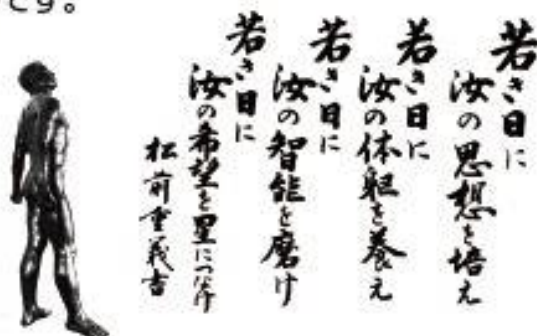 です。
若き日に
汝の思想を培え
若き日に
汝の体躯を養え
若き日に
汝の智能を磨け
若き日に
汝の希望を星につなげ
松前重義書